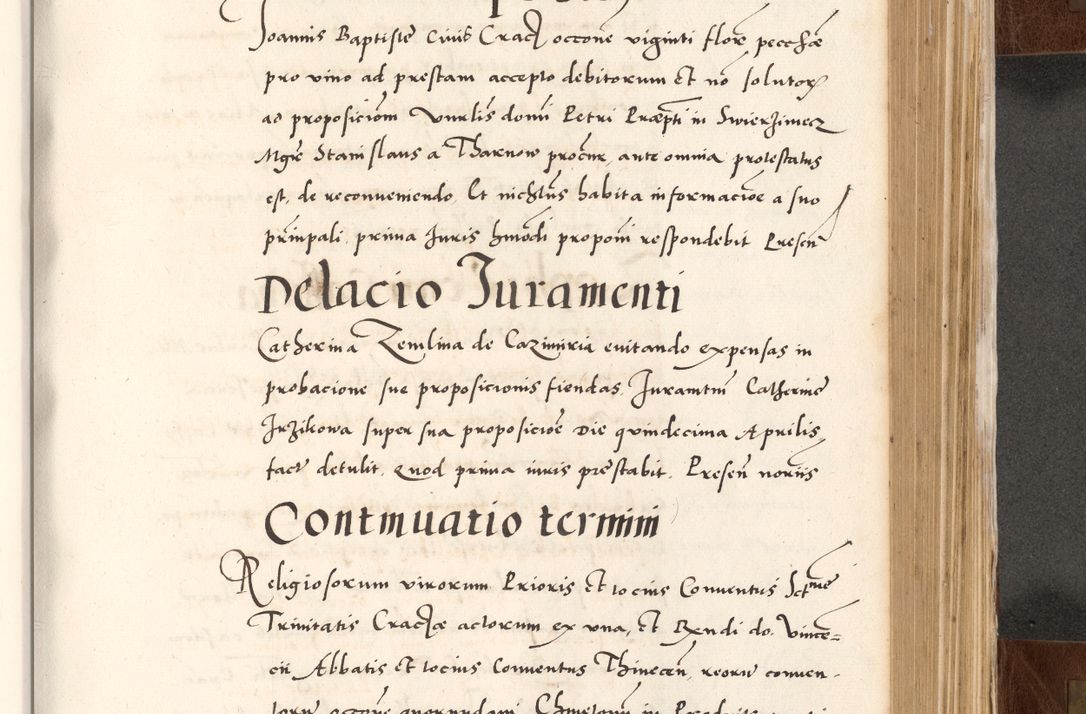 Joannis Baptiste civis Crac occone viginti flore pecchae
pro vino ad prestam accepto debitorum et no solutor
ad proposiciom domi Petri Praepti in Swierzimecz
Mgre Stanislaus a Tharnow procur, ante omnia protestatus
est, de reconveniendo, Et nichlus habita informacioe a suo
prinpali prima Juris hmodi proponi respondebit Presen
Delacio Juramenti
Catherina Zemlina de Cazimiria evitando expensas in
probacione sue proposicionis fiendas, Juramtm Catherine
Irzikowa super sua proposicioe Die quindecima Aprilis
fact detulit, Quod prima iuris prestabit. Presen noriis
Continuatio termini
Religiosorum virorum Prioris et tocius Conventus Sctme
Trinitatis Crac actorum ex una, Et Rendi do. Vince=
cii Abbatis et tocius Conventus Thinecen, reorum conven-
torum occone quorundam Chmetonum in